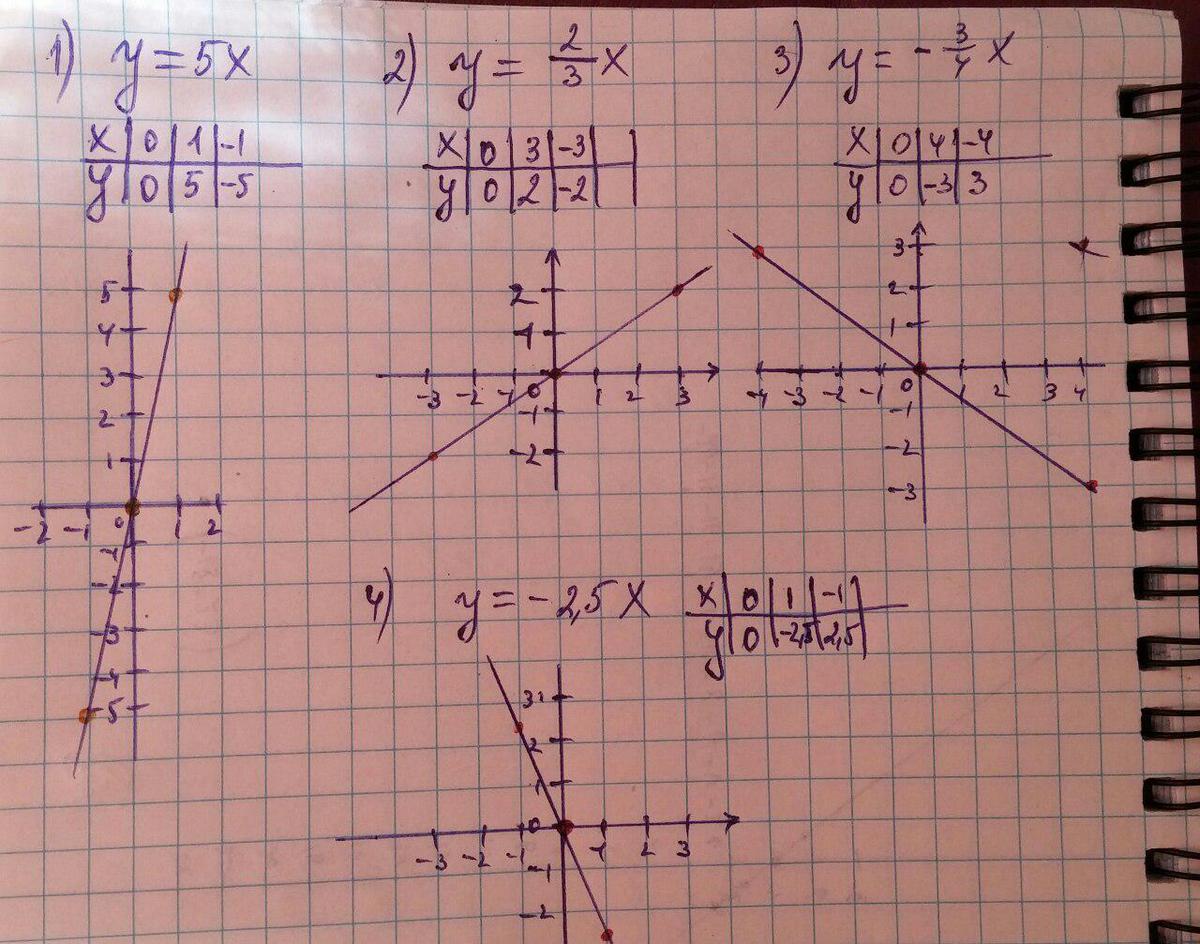 1) y = 5x
x | 0 | 1 | -1
y | 0 | 5 | -5
5
4
3
2
1
-2 -1 0 1 2
-1
-2
-3
-4
-5
2) y = 2/3 x
x | 0 | 3 | -3 |
y | 0 | 2 | -2 |
2
1
-3 -2 -1 0 1 2 3
-1
-2
3) y = - 3/4 x
x | 0 | 4 | -4
y | 0 | -3 | 3
3
2
1
-4 -3 -2 -1 0 1 2 3 4
-1
-2
-3
4) y = -2,5x
x | 0 | 1 | -1 |
y | 0 | -2,5 | 2,5 |
3
2
1
0
-3 -2 -1 1 2 3
-1
-2